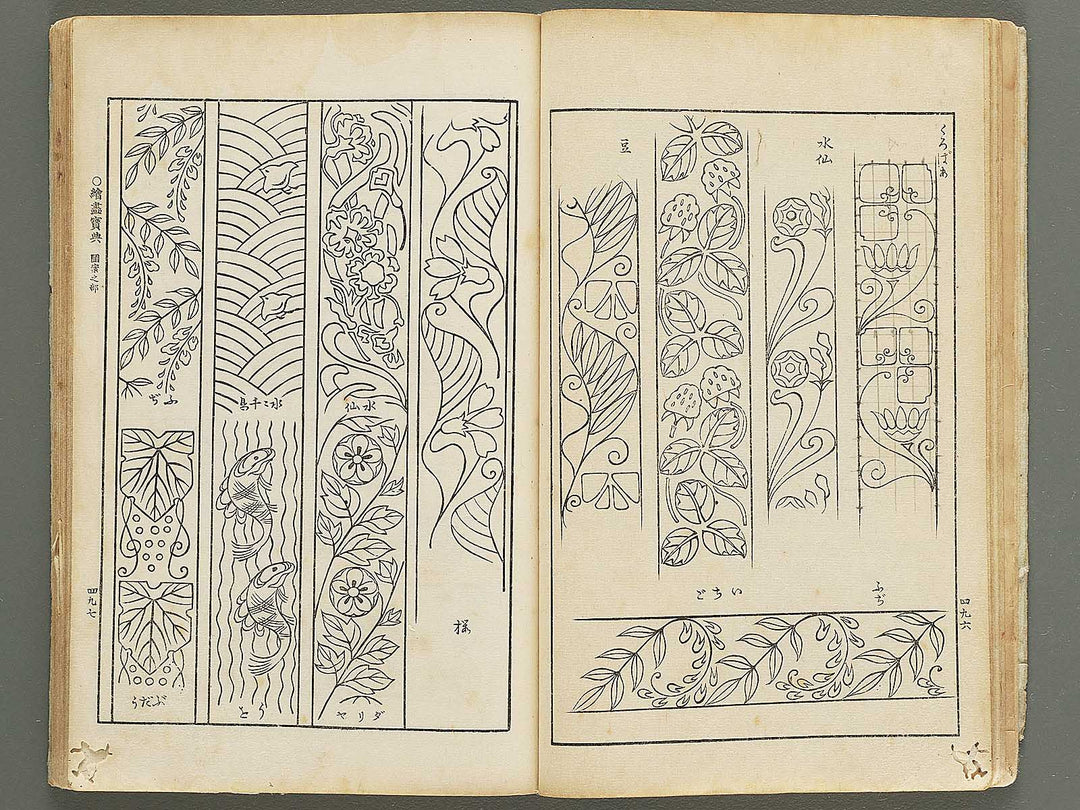 くろばあ
水仙
豆
いちご
ふぢ
四九六
桜
水仙
ダリヤ
水ニ千鳥
うを
ふぢ
ぶだう
〇繪畫寶典 圖案之部
四九七